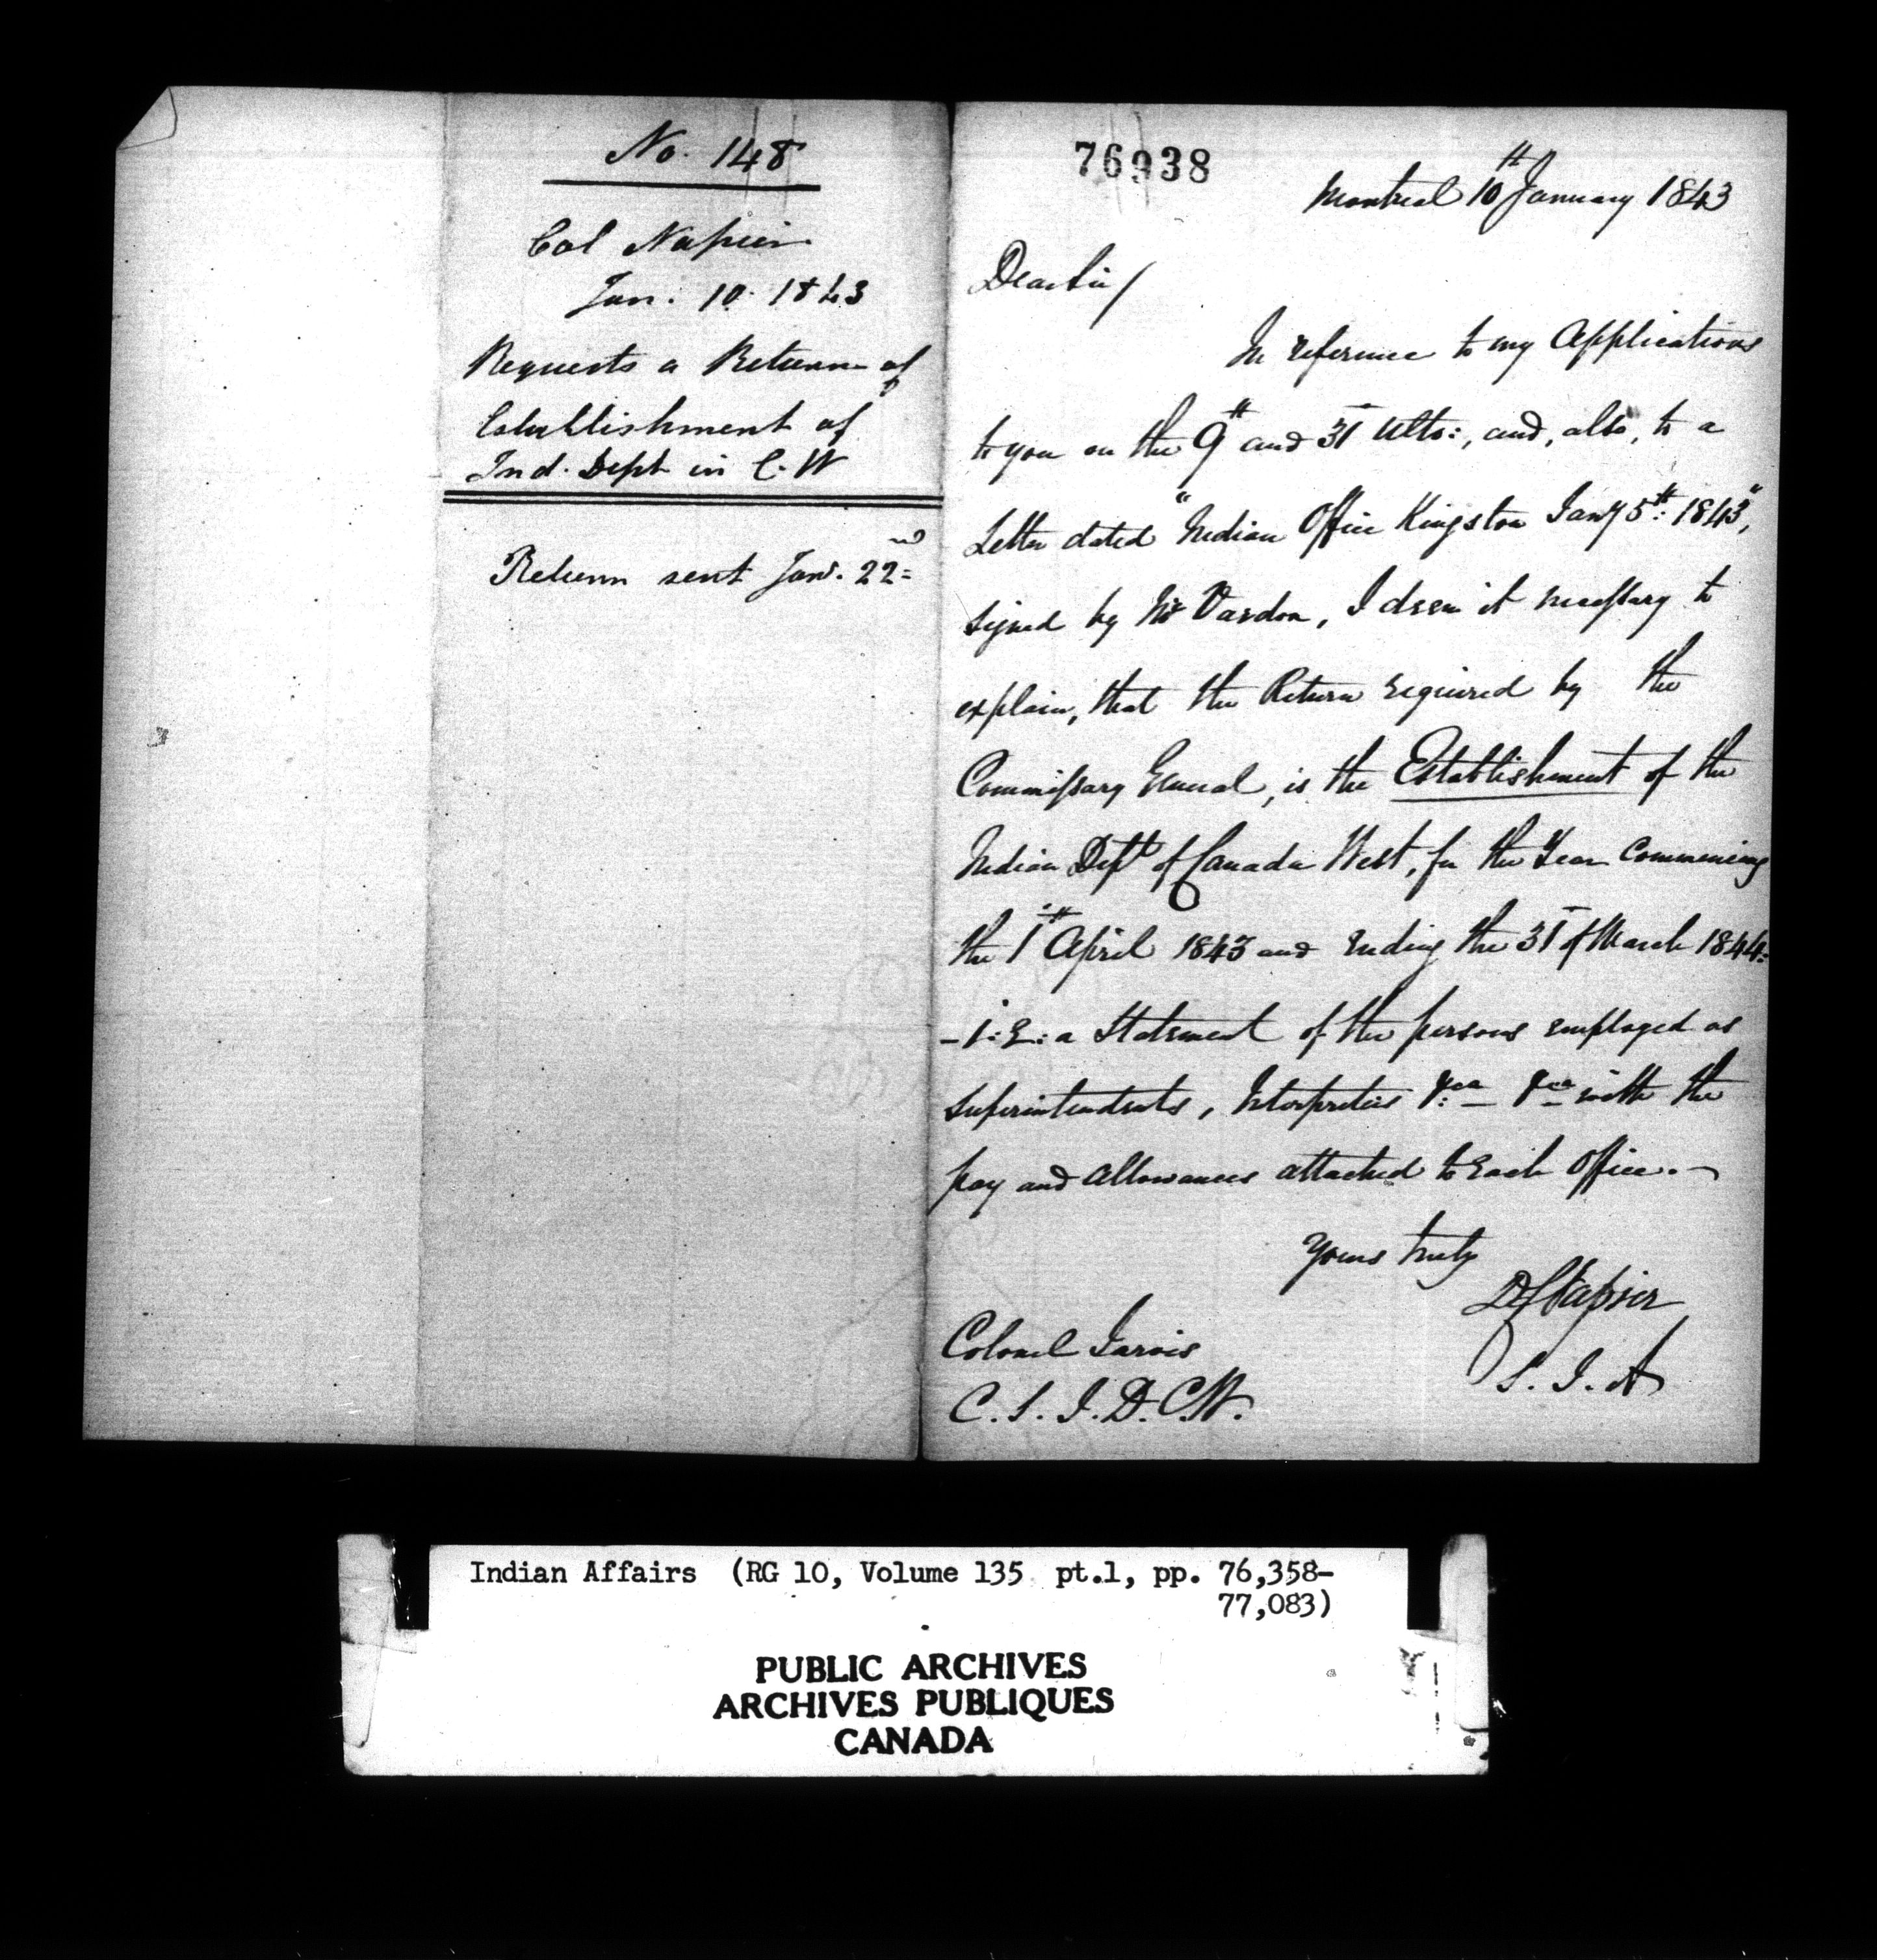 No. 148
Col Napier
Jan. 10. 1843
Requests a Return of
Establishment of
Ind. Dept in C. W
Return sent Jany. 22nd
76938
Montreal 10th January 1843
Dear Sir/
In reference to my Applications
to you on the 9th and 31st Ulto:, and, also, to a
Letter dated "Indian Office Kingston Jany 5th: 1843",
signed by Mr Vardon, I deem it necessary to
explain, that the Return required by the
Commissary General, is the Establishment of the
Indian Dept of Canada West, for the Year Commencing
the 1st April 1843 and Ending the 31st of March 1844:
- i: E: a Statement of the persons employed as
Superintendents, Interpreters &ca &ca with the
pay and Allowances attached to Each Office. -
Yours truly
DC Napier
S. I. A
Colonel Jarvis
C. S. I. D. C.W.
Indian Affairs (RG 10, Volume 135 pt.1, pp. 76,358-
77,083)
PUBLIC ARCHIVES
ARCHIVES PUBLIQUES
CANADA